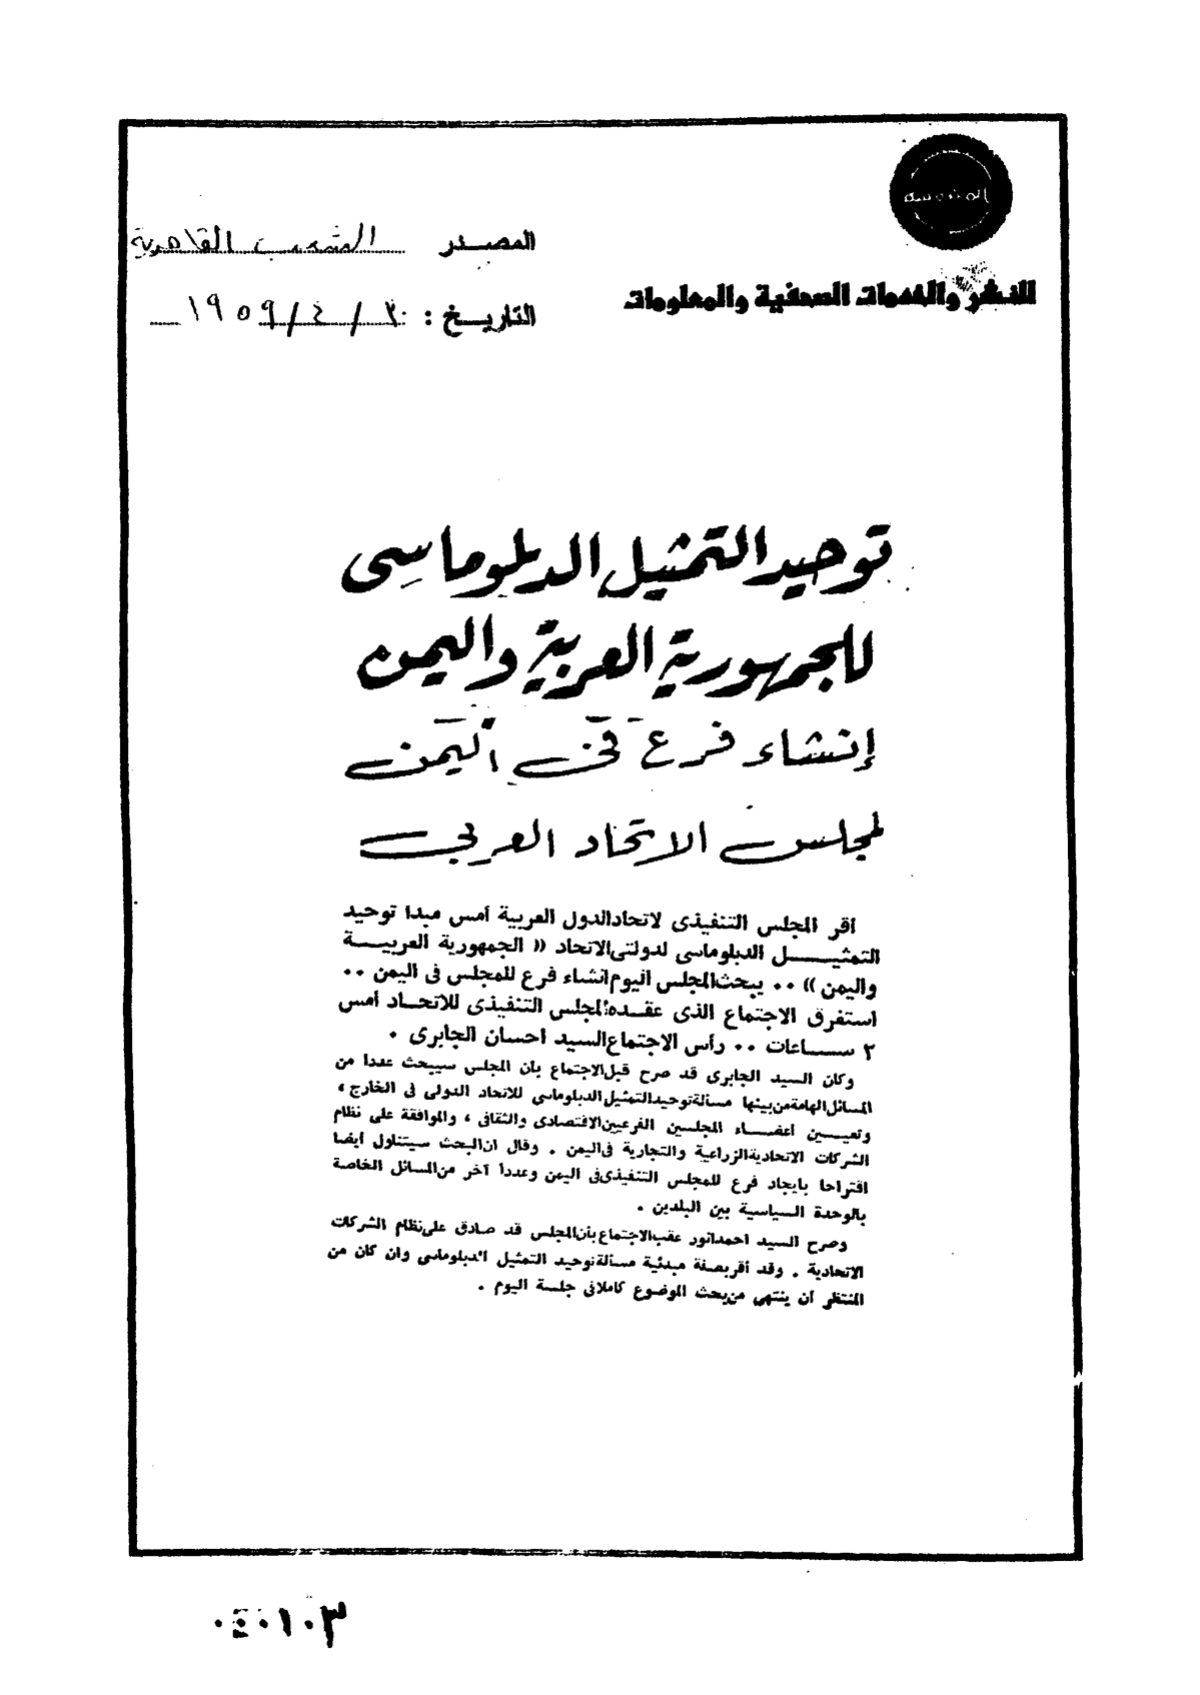 المصدر الشعب القاهرية
للنشر والخدمات الصحفية والمعلومات
التاريخ : ٣٠ / ٤ / ١٩٥٩
توحيد التمثيل الدبلوماسى
للجمهورية العربية واليمن
إنشاء فرع فى اليمن
لمجلس الاتحاد العربى
اقر المجلس التنفيذى لاتحاد الدول العربية أمس مبدا توحيد
التمثيل الدبلوماسى لدولتى الاتحاد « الجمهورية العربية
واليمن » .. يبحث المجلس اليوم انشاء فرع للمجلس فى اليمن ..
استغرق الاجتماع الذى عقده المجلس التنفيذى للاتحاد أمس
٣ ساعات .. رأس الاجتماع السيد احسان الجابرى .
وكان السيد الجابرى قد صرح قبل الاجتماع بأن المجلس سيبحث عددا من
المسائل الهامة من بينها مسألة توحيد التمثيل الدبلوماسى للاتحاد الدولى فى الخارج ،
وتعيين اعضاء المجلسين الفرعيين الاقتصادى والثقافى ، والموافقة على نظام
الشركات الاتحادية الزراعية والتجارية فى اليمن . وقال ان البحث سيتناول أيضا
اقتراحا بايجاد فرع للمجلس التنفيذى فى اليمن وعددا آخر من المسائل الخاصة
بالوحدة السياسية بين البلدين .
وصرح السيد احمد انور عقب الاجتماع بأن المجلس قد صادق على نظام الشركات
الاتحادية . وقد أقر بصفة مبدئية مسألة توحيد التمثيل الدبلوماسى وان كان من
المنتظر أن ينتهى من بحث الموضوع كاملا فى جلسة اليوم .
٠٤٠١٠٣